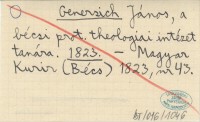 Genersich János, a
bécsi prot. theologiai intézet
tanára. 1823. — Magyar
Kurir (Bécs) 1823, nr 43.